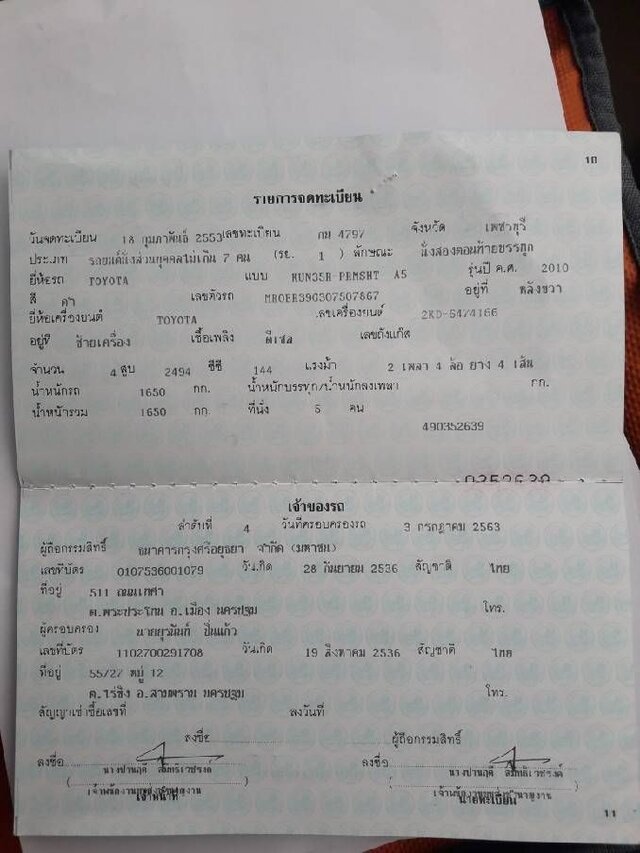 10
รายการจดทะเบียน
วันจดทะเบียน 18 กุมภาพันธ์ 2553 เลขทะเบียน กน 4797 จังหวัด เพชรบุรี
ประเภท รถยนต์นั่งส่วนบุคคลไม่เกิน 7 คน (รย. 1 ) ลักษณะ นั่งสองตอนท้ายบรรทุก
ยี่ห้อรถ TOYOTA แบบ KUN35R-PRMSHT A5 รุ่นปี ค.ศ. 2010
สี ดำ เลขตัวรถ MR0ER39G307507867 อยู่ที่ หลังขวา
ยี่ห้อเครื่องยนต์ TOYOTA เลขเครื่องยนต์ 2KD-6474166
อยู่ที่ ซ้ายเครื่อง เชื้อเพลิง ดีเซล เลขถังแก๊ส
จำนวน 4 สูบ 2494 ซีซี 144 แรงม้า 2 เพลา 4 ล้อ ยาง 4 เส้น
น้ำหนักรถ 1650 กก. น้ำหนักบรรทุก/น้ำหนักลงเพลา กก.
น้ำหนักรวม 1650 กก. ที่นั่ง 5 คน
490352639
เจ้าของรถ
ลำดับที่ 4 วันที่ครอบครองรถ 3 กรกฎาคม 2563
ผู้ถือกรรมสิทธิ์ ธนาคารกรุงศรีอยุธยา จำกัด (มหาชน)
เลขที่บัตร 0107536001079 วันเกิด 28 กันยายน 2536 สัญชาติ ไทย
ที่อยู่ 511 ถนนเทศา
ต.พระประโทน อ.เมือง นครปฐม โทร.
ผู้ครอบครอง ปิ่นแก้ว
เลขที่บัตร 1102700291708 วันเกิด 19 สิงหาคม 2536 สัญชาติ ไทย
ที่อยู่ 55/27 หมู่ 12
ต.ไร่ขิง อ.สามพราน นครปฐม โทร.
สัญญาเช่าซื้อเลขที่ ลงวันที่
ลงชื่อ ผู้ถือกรรมสิทธิ์
ลงชื่อ ลงชื่อ
เจ้าหน้าที่ นายทะเบียน
11